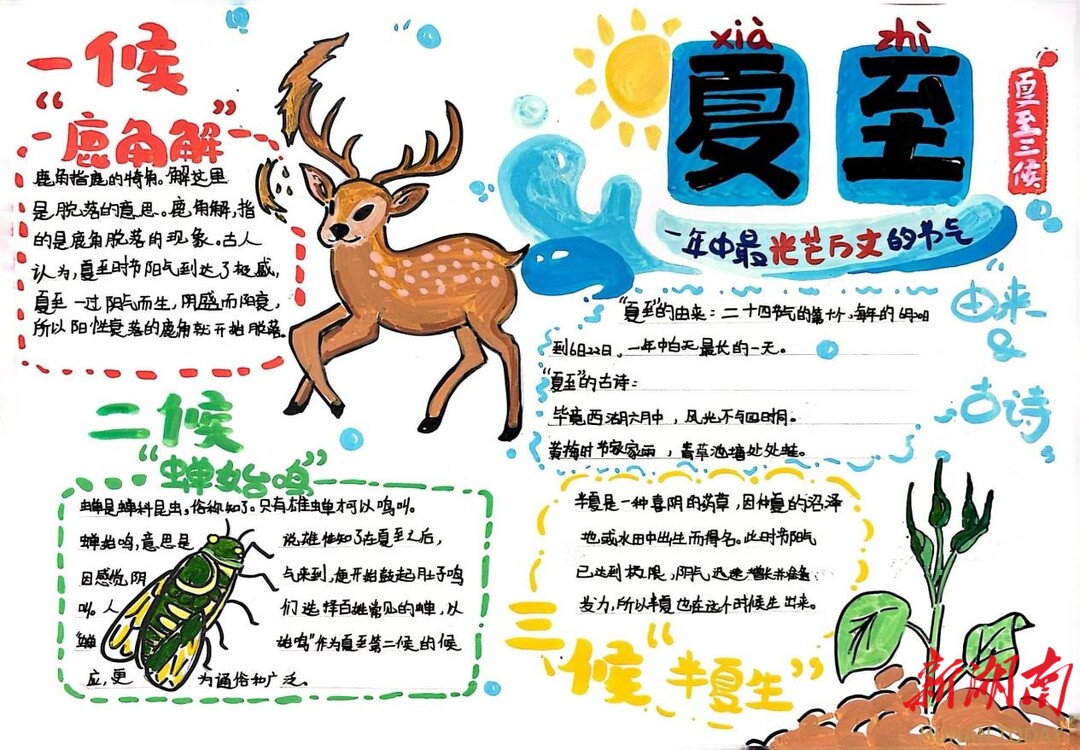 一候
“鹿角解”
鹿角指鹿的犄角。解这里
是脱落的意思。鹿角解,指
的是鹿角脱落的现象。古人
认为,夏至时节阳气到达了极盛,
夏至一过阴气而生,阴盛而阳衰,
所以阳性衰落的鹿角就开始脱落。
xià zhì
夏至
夏至三候
一年中最光芒万丈的节气
由来
&
古诗
“夏至”的由来:二十四节气的第十个,每年的6月20日
到6月22日,一年中白天最长的一天。
“夏至”的古诗:
毕竟西湖六月中,风光不与四时同。
黄梅时节家家雨,青草池塘处处蛙。
二候
“蝉始鸣”
蝉是蝉科昆虫,俗称知了。只有雄蝉才可以鸣叫。
蝉始鸣,意思是 说雄性知了在夏至之后,
因感觉阴 气来到,便开始鼓起肚子鸣
叫。人 们选择百姓常见的蝉,以
“蝉 始鸣”作为夏至第二候的候
应,更 为通俗和广泛。
半夏是一种喜阴的药草,因仲夏的沼泽
地或水田中出生而得名。此时节阳气
已达到极限,阴气迅速增长并准备
发力,所以半夏也在这个时候生出来。
三候“半夏生”
新湖南